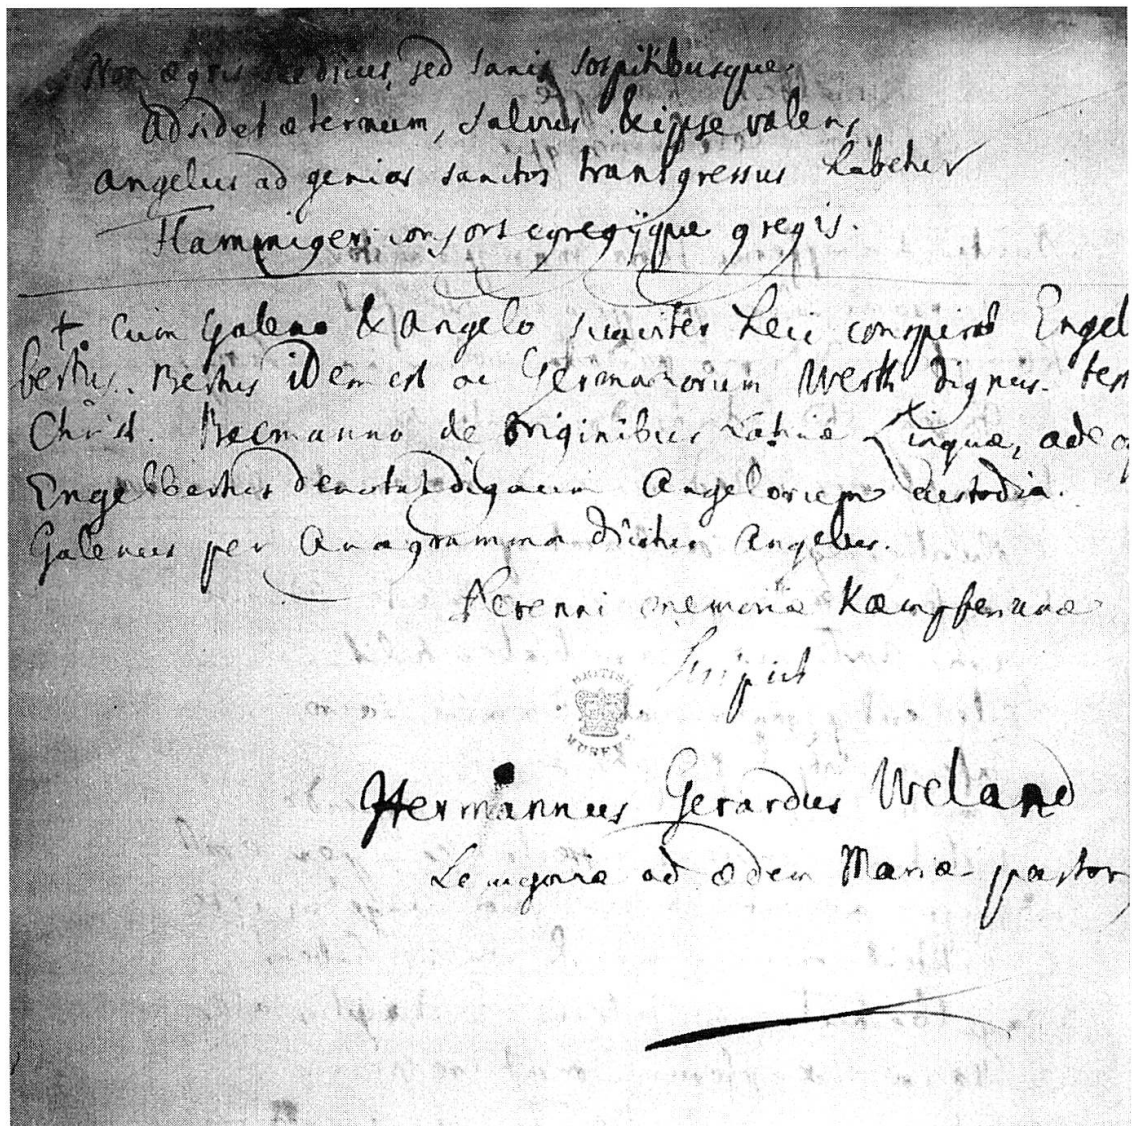 Non ægris medicus, sed sanis sospitibusque
Adsidet æternum, salvus & ipse valens
Angelus ad genios sanctos transgressus habetur
Flammigeri consors egregijque gregis.
†. Cum Galeno & Angelo suaviter heic conspirat Engel
bertus. Bertus idem est ac Germanorum Werth dignus. test
Christ. Becmanno de Originibus Latinæ Linguæ, adeoq
Engelbertus denotat dignum Angelorum custodia.
Galenus per Anagramma dicitur Angelus.
Perenni memoriæ Kæmpferianæ
Scripsit
BRITISH
MUSEUM
Hermannus Gerardus Weland
Lemgoviæ ad ædem Mariæ pastor